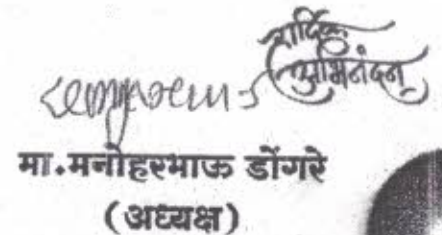 हार्दिक
अभिनंदन
मा.मनोहरभाऊ डोंगरे
(अध्यक्ष)